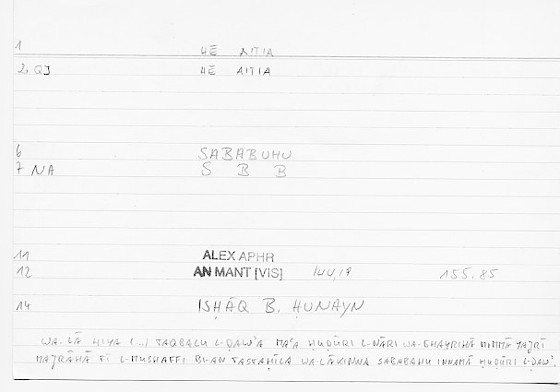 1 HĒ AITIA
2 QJ HĒ AITIA
6 SABABUHU
7 NA S B B
11 ALEX APHR
12 AN MANT [VIS] 144,19 155.85
14 ISḤĀQ B. ḤUNAYN
WA-LĀ HIYA (...) TAQBALU L-ḌAW'A MA'A ḤUḌŪRI L-NĀRI WA-GHAYRIHĀ MIMMĀ YAJRĪ
MAJRĀHĀ FĪ L-MUSHAFFI BI-AN TASTAḤĪLA WA-LĀKINNA SABABAHU INNAMĀ ḤUḌŪRU L-ḌAW'